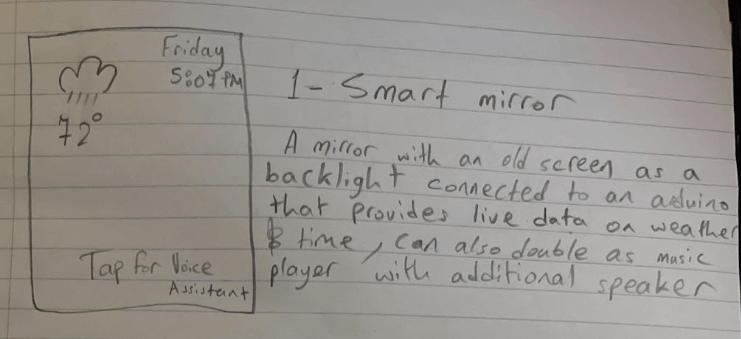 Friday
5:07 PM
72°
Tap for Voice
Assistant
1- Smart mirror
A mirror with an old screen as a
backlight connected to an arduino
that provides live data on weather
& time, can also double as music
player with additional speaker